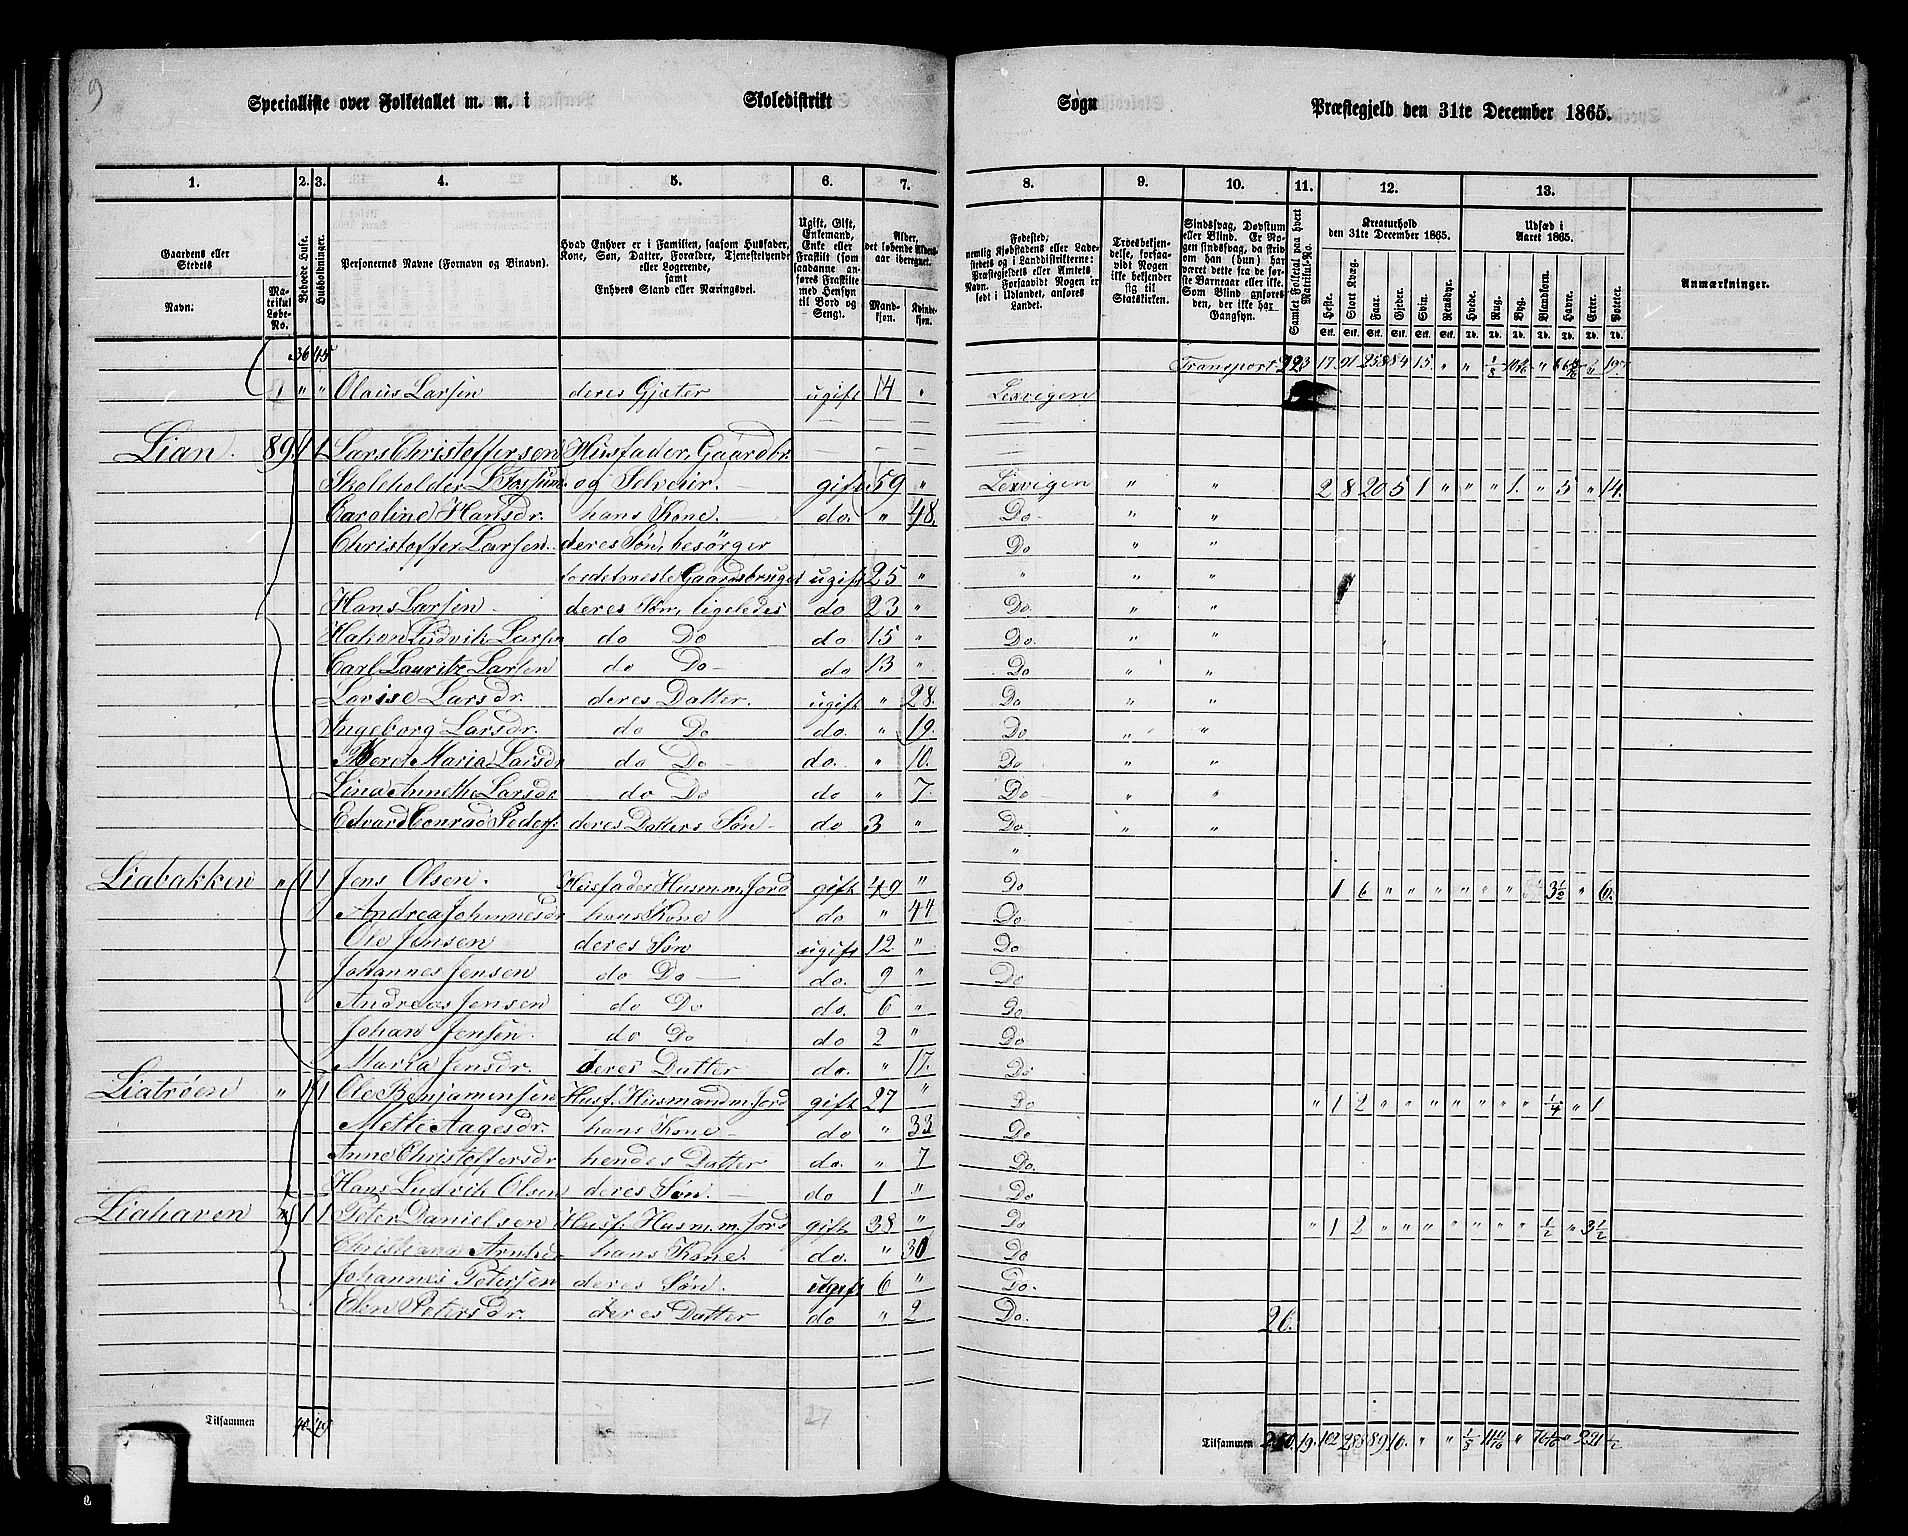 9
Specialliste over Folketallet m. m. i Skoledistrikt Sogn Præstegjeld den 31te December 1865.
1. 2. 3. 4. 5. 6. 7. 8. 9. 10. 11. 12. 13.
Gaardens eller Stedets Navn.
Matrikul Løbe-No.
Beboede Huse.
Husholdninger.
Personernes Navne (Fornavn og Binavn).
Hvad Enhver er i Familien, saasom Husfader, Kone, Søn, Datter, Forældre, Tjenestetyende eller Logerende, samt Enhvers Stand eller Næringsvei.
Ugift, Gift, Enkemand, Enke eller Fraskilt (som saadanne anføres Fraskilte med Hensyn til Bord og Seng).
Alder, det løbende Aldersaar iberegnet.
Mandkjøn. Kvindekjøn.
Fødested, nemlig Kjøbstadens eller Ladestedets og i Landdistrikterne: Præstegjeldets eller Amtets Navn. Forsaavidt Nogen er født i Udlandet, anføres Landet.
Troesbekjendelse, forsaavidt Nogen ikke bekjender sig til Statskirken.
Sindssvag, Døvstum eller Blind. Er Nogen sindssvag, da skrives om han (hun) har været dette fra de første Barneaar eller ikke. Som Blind anføres den, der ikke har Gangsyn.
Samlet Folketal paa hvert Matrikul-No.
Kreaturhold den 31te December 1865.
Heste. Stort Kvæg. Faar. Gjeder. Svin. Rensdyr.
Udsæd i Aaret 1865.
Hvede. Rug. Byg. Blandkorn. Havre. Erter. Poteter.
Anmærkninger.
36 45 Transport 223 17 91 258 84 15 " "
" " Olaus Larsen deres Gjæter ugift 14 " Lexvigen
Lian. 89 1 1 Lars Christoffersen Husfader, Gaardbr.
Skoleholder L. Fossum. og Selveier. gift 59 " Lexvigen " " 2 8 20 5 1 " " " 1. " 5 " 14.
Caroline Hansdr. hans Kone. do. " 48. Do " "
Christoffer Larsen. deres Søn, besørger Do " "
fordetmeste Gaardsbruget ugift 25 " " " "
Hans Larsen deres Søn, ligeledes do 23 " Do " "
Hakon Ludvik Larsen do Do do 15 " Do. " "
Carl Lauritz Larsen do Do do 13 " Do " "
Lovise Larsdr. deres Datter. ugift " 28. Do " "
Ingeborg Larsdr. do Do do. " 19. Do " "
Beret Maria Larsdr do Do do. " 10. Do " "
Lina Annethe Larsdr. do Do do " 7. Do " "
Edvard Conrad Peders. deres Datters Søn do 3 " Do " "
"
Liabakken " 1 1 Jens Olsen. Husfader Husm. m. Jord gift 49 " Do 1 6 " " " " " " " 3½ " 6.
Andrea Johannesdr hans Kone do " 44 Do
Ole Jensen deres Søn ugift 12. " Do
Johannes Jensen do Do do. 9 " Do
Andreas Jensen do Do do. 6 " Do
Johan Jensen. do Do do 2 " Do
Maria Jensdr. deres Datter do. " 17. Do
Liatrøen " 1 1 Ole Benjaminsen Husf. Husmand m. Jord gift 27 " Do " 1 2 " " " " " " " ¼ " 1
Mette Aagesdr. hans Kone do " 33 Do
Anne Christoffersdr hendes Datter do. " 7 Do.
Hans Ludvik Olsen deres Søn. do 1 " Do
Liahaven " 1 1 Peter Danielsen Husf. Husm. m. Jord gift 38 " Do " 1 2 " " " " " " " ½ " 3½
Christiana hans Kone. do. " 30 Do
Johannes Petersen deres Søn. ugift 6 " Do.
Elen Petersdr. deres Datter do " 2 Do. 26.
27
Tilsammen 40 49 Tilsammen 19. 102 288 89 16. " "